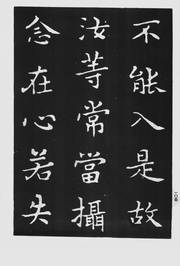 不能入是故
汝等常當攝
念在心若失